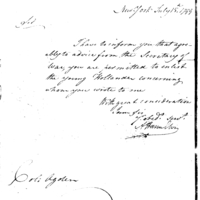 New York Feby 1st 1799
Sir
I have to inform you that agre-
ably to advice from the Secretary of
War, you are permitted to enlist
the young Hollander concerning
whom you wrote to me
With great consideration
I am Sir
Yr obedt Servt
A Hamilton
Col: Ogden